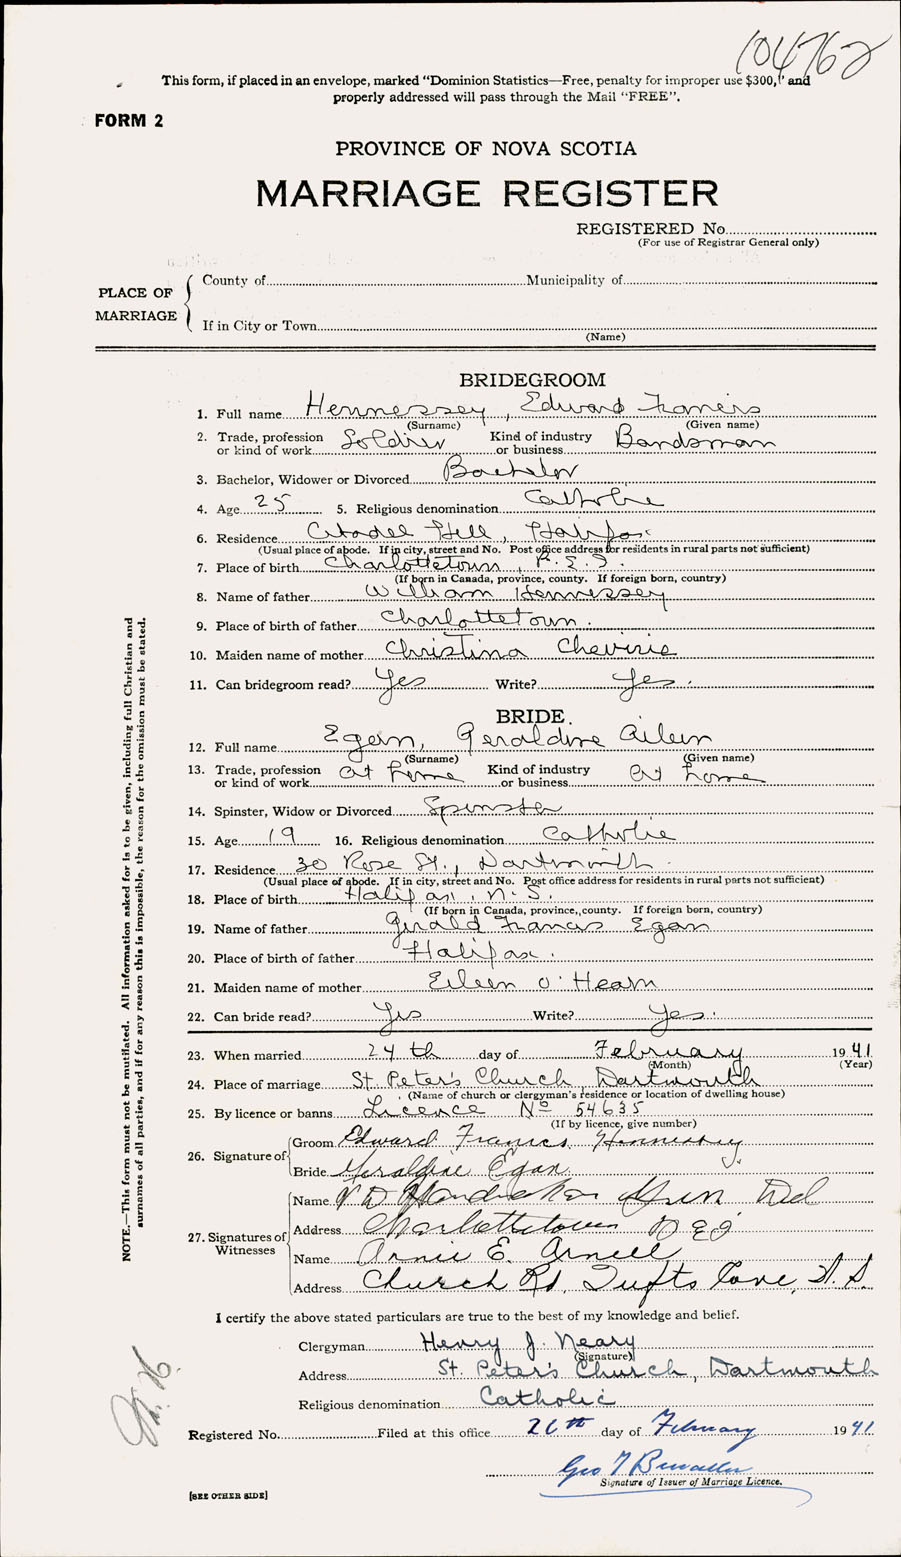 104762
This form, if placed in an envelope, marked "Dominion Statistics—Free, penalty for improper use $300," and
properly addressed will pass through the Mail "FREE".
FORM 2
PROVINCE OF NOVA SCOTIA
MARRIAGE REGISTER
REGISTERED No.
(For use of Registrar General only)
PLACE OF MARRIAGE
County of Municipality of
If in City or Town
(Name)
BRIDEGROOM
1. Full name Hennessey, Edward Francis
(Surname) (Given name)
2. Trade, profession or kind of work Soldier Kind of industry or business Bandsman
3. Bachelor, Widower or Divorced Bachelor
4. Age 25 5. Religious denomination Catholic
6. Residence Citadel Hill, Halifax
(Usual place of abode. If in city, street and No. Post office address for residents in rural parts not sufficient)
7. Place of birth Charlottetown, P.E.I.
(If born in Canada, province, county. If foreign born, country)
8. Name of father William Hennessey
9. Place of birth of father Charlottetown.
10. Maiden name of mother Christina Cheverie
11. Can bridegroom read? Yes Write? Yes.
BRIDE.
12. Full name Egan, Geraldine Aileen
(Surname) (Given name)
13. Trade, profession or kind of work at home Kind of industry or business at home
14. Spinster, Widow or Divorced Spinster
15. Age 19 16. Religious denomination Catholic
17. Residence 30 Rose St., Dartmouth.
(Usual place of abode. If in city, street and No. Post office address for residents in rural parts not sufficient)
18. Place of birth Halifax, N.S.
(If born in Canada, province, county. If foreign born, country)
19. Name of father Gerald Francis Egan
20. Place of birth of father Halifax.
21. Maiden name of mother Eileen O'Hearn
22. Can bride read? Yes Write? Yes.
23. When married 24th day of February 1941
(Month) (Year)
24. Place of marriage St. Peter's Church, Dartmouth
(Name of church or clergyman's residence or location of dwelling house)
25. By licence or banns Licence No 54635
(If by licence, give number)
26. Signature of Groom Edward Francis Hennessey
Bride Geraldine Egan
27. Signatures of Witnesses
Name
Address Charlottetown P E I
Name Annie E. Arnell
Address Church Rd, Tufts Cove, N.S.
I certify the above stated particulars are true to the best of my knowledge and belief.
Clergyman Henry J. Neary
(Signature)
Address St. Peter's Church, Dartmouth
Religious denomination Catholic
Registered No. Filed at this office 26th day of February 1941
Geo
Signature of Issuer of Marriage Licence.
[SEE OTHER SIDE]
NOTE.—This form must not be mutilated. All information asked for is to be given, including full Christian and
surnames of all parties, and if for any reason this is impossible, the reason for the omission must be stated.